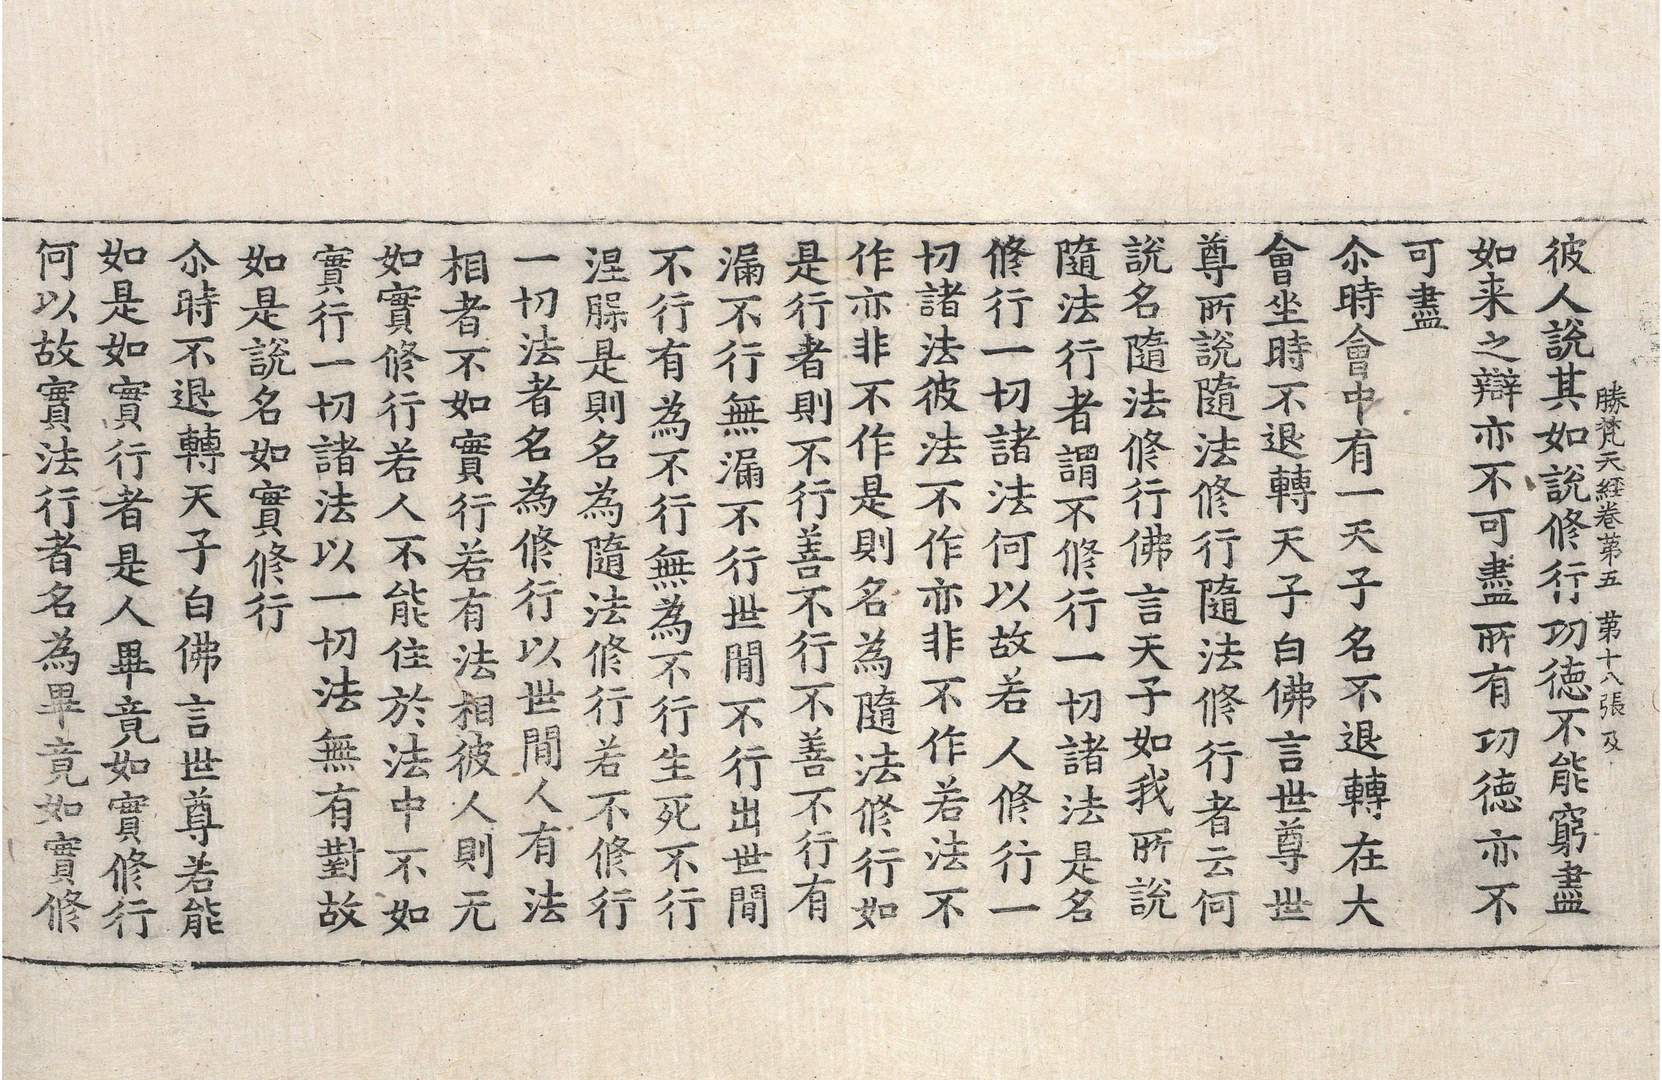 勝梵天經卷第五 第十八張 及
彼人說其如說修行功德不能窮盡
如来之辯亦不可盡所有功德亦不
可盡
尒時會中有一天子名不退轉在大
會坐時不退轉天子白佛言世尊世
尊所說隨法修行隨法修行者云何
說名隨法修行佛言天子如我所說
隨法行者謂不修行一切諸法是名
修行一切諸法何以故若人修行一
切諸法彼法不作亦非不作若法不
作亦非不作是則名為隨法修行如
是行者則不行善不行不善不行有
漏不行無漏不行世間不行出世間
不行有為不行無為不行生死不行
涅槃是則名為隨法修行若不修行
一切法者名為修行以世間人有法
相者不如實行若有法相彼人則无
如實修行若人不能住於法中不如
實行一切諸法以一切法無有對故
如是說名如實修行
尒時不退轉天子白佛言世尊若能
如是如實行者是人畢竟如實修行
何以故實法行者名為畢竟如實修